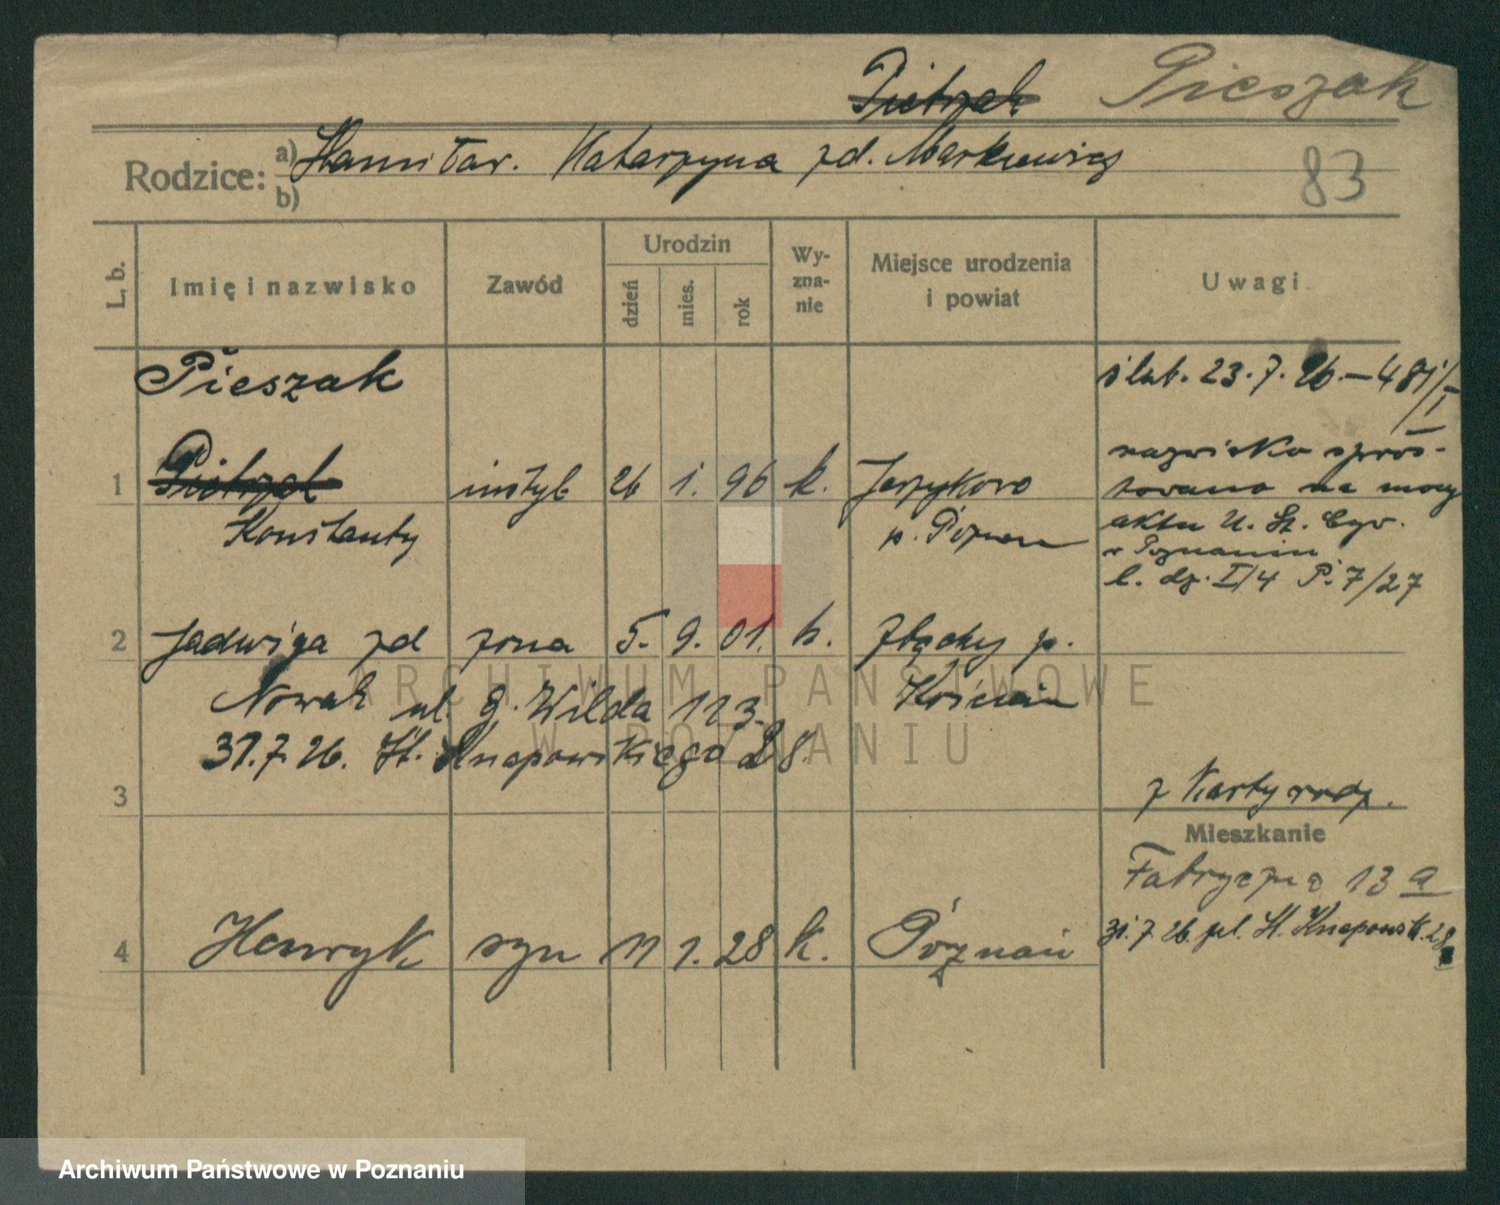 Pietrzak Pieszak
Rodzice: a) Stanisław. Katarzyna zd. Markiewicz
b)
83
L. b. Imię i nazwisko Zawód Urodzin dzień mies. rok Wyznanie Miejsce urodzenia i powiat Uwagi
Pieszak ślub. 23.7.26.–481/I
nazwisko sprosto-
1 Pietrzak 26 1. 96 k. Jerzykowo towano na mocy
Konstanty p. Poznań aktu U. St. Cyw.
w Poznaniu
l. dz. I/4 P. 7/27
2 Jadwiga zd żona 5. 9. 01. k. Zbęchy p.
Nowak ul. G. Wilda 123. Kościan
31.7.26. St. Knapowskiego 28.
3 z Karty rodz.
Mieszkanie
Fabryczna 13 a
4 Henryk syn 11 1. 28 k. Poznań 31.7.26 ul. St. Knapowsk. 28
ARCHIWUM PAŃSTWOWE
W POZNANIU
Archiwum Państwowe w Poznaniu